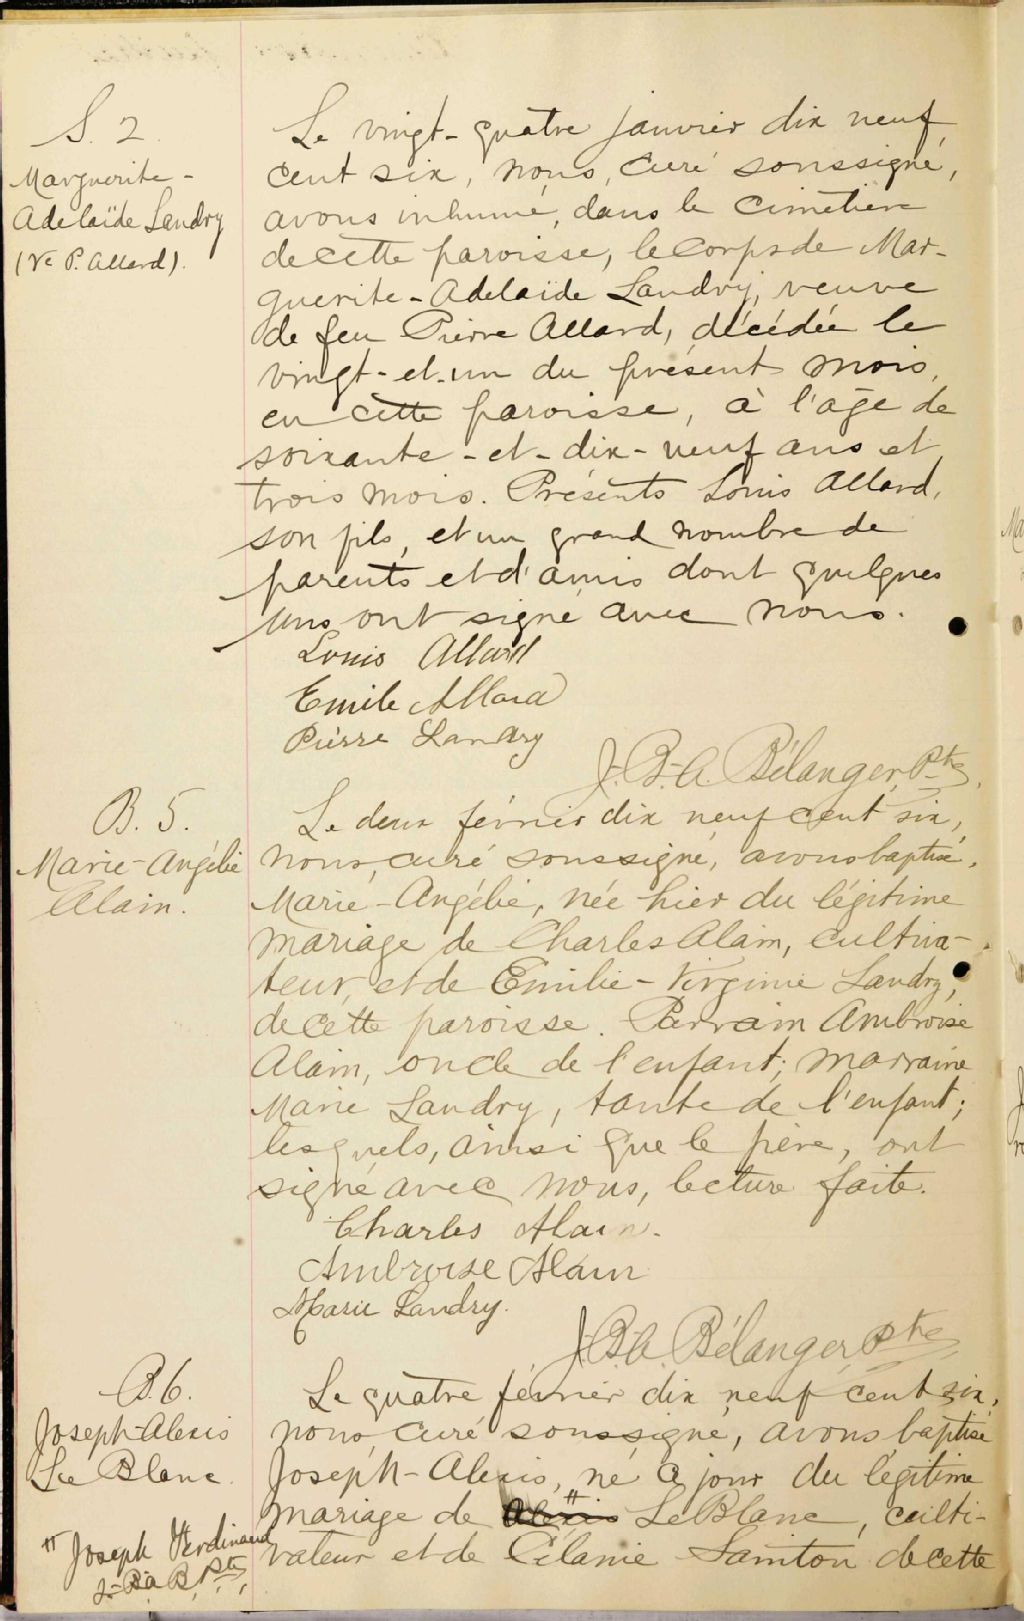 S. 2.
Marguerite-
Adelaïde Landry
(Ve P. Allard).
Le vingt-quatre janvier dix neuf
cent six, nous, curé soussigné,
avons inhumé, dans le cimetière
de cette paroisse, le corps de Mar-
guerite-Adelaïde Landry, veuve
de feu Pierre Allard, décédée le
vingt-et-un du présent mois,
en cette paroisse, à l'âge de
soixante-et-dix-neuf ans et
trois mois. Présents Louis Allard,
son fils, et un grand nombre de
parents et d'amis dont quelques
uns ont signé avec nous.
Louis Allard
Emile Allard
Pierre Landry
J.-B.-A. Bélanger, Ptre.
B. 5.
Marie-Angélie
Alain.
Le deux février dix neuf cent six,
nous, curé soussigné, avons baptisé,
Marie-Angélie, née hier du légitime
mariage de Charles Alain, cultiva-
teur, et de Emilie-Virginie Landry,
de cette paroisse. Parrain Ambroise
Alain, oncle de l'enfant; marraine
Marie Landry, tante de l'enfant;
lesquels, ainsi que le père, ont
signé avec nous, lecture faite.
Charles Alain.
Ambroise Alain
Marie Landry.
J.-B.-A. Bélanger, Ptre
B. 6.
Joseph-Alexis
Le Blanc.
Le quatre février dix neuf cent six,
nous, curé soussigné, avons baptisé
Joseph-Alexis, né ce jour du légitime
mariage de Alexis # LeBlanc, culti-
vateur et de Célanie Lanton de cette
# Joseph Ferdinand
J.-B.-A. B. Ptre.